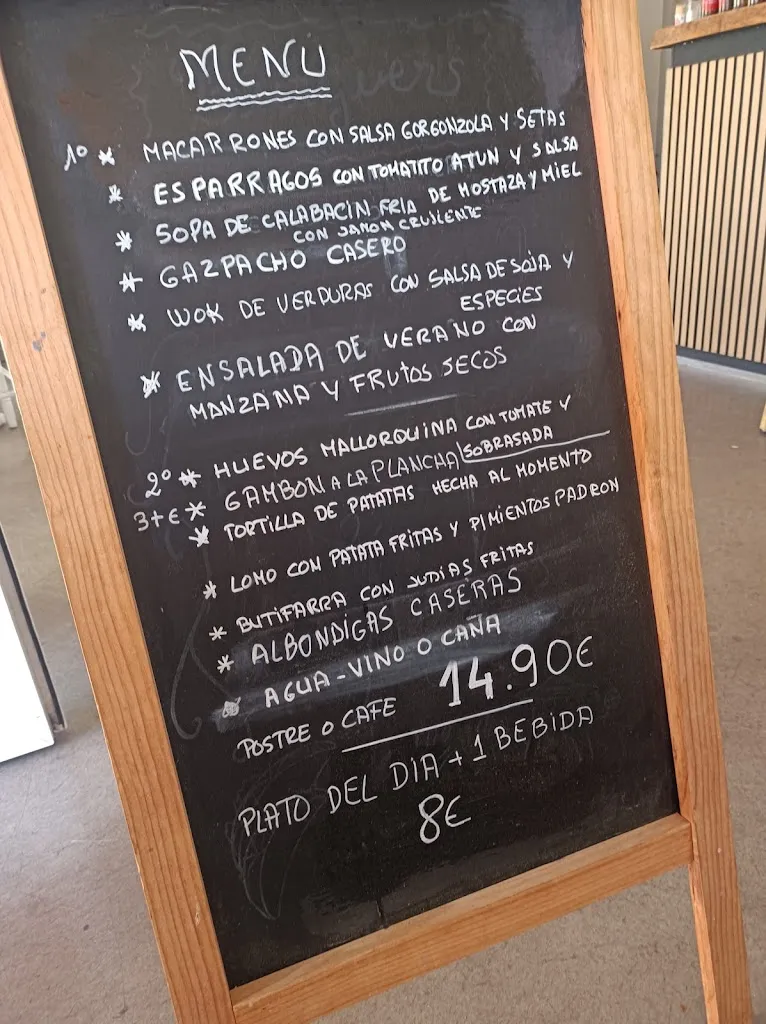 MENU
1º * MACARRONES CON SALSA GORGONZOLA Y SETAS
* ESPARRAGOS CON TOMATITO ATUN Y SALSA
DE MOSTAZA Y MIEL
* SOPA DE CALABACIN FRIA
CON JAMON CRUJIENTE
* GAZPACHO CASERO
* WOK DE VERDURAS CON SALSA DE SOJA Y
ESPECIES
* ENSALADA DE VERANO CON
MANZANA Y FRUTOS SECOS
2º * HUEVOS MALLORQUINA CON TOMATE Y
SOBRASADA
3+€ * GAMBON A LA PLANCHA
* TORTILLA DE PATATAS HECHA AL MOMENTO
* LOMO CON PATATA FRITAS Y PIMIENTOS PADRON
* BUTIFARRA CON JUDIAS FRITAS
* ALBONDIGAS CASERAS
AGUA-VINO O CAÑA
POSTRE O CAFE 14.90€
PLATO DEL DIA + 1 BEBIDA
8€